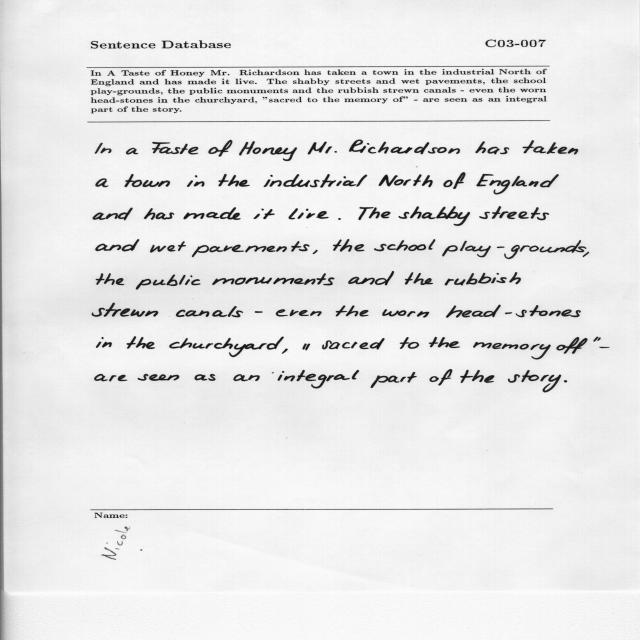 Sentence Database C03-007
In A Taste of Honey Mr. Richardson has taken a town in the industrial North of
England and has made it live. The shabby streets and wet pavements, the school
play-grounds, the public monuments and the rubbish strewn canals - even the worn
head-stones in the churchyard, "sacred to the memory of" - are seen as an integral
part of the story.
In a Taste of Honey Mr. Richardson has taken
a town in the industrial North of England
and has made it live. The shabby streets
and wet pavements, the school play-grounds,
the public monuments and the rubbish
strewn canals - even the worn head-stones
in the churchyard, „sacred to the memory off"-
are seen as an integral part of the story.
Name:
Nicole